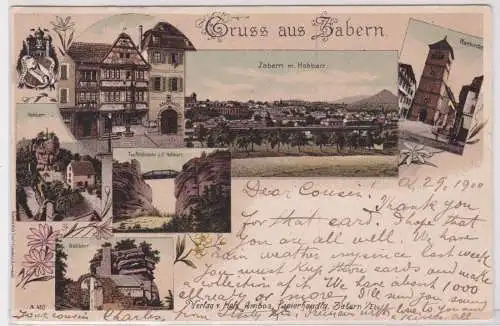 Gruss aus Zabern.
Zabern m. Hohbarr.
Hohbarr.
Teufelsbrücke a/d Hohbarr.
Hohbarr
Dear Cousin! A. 29, 1900
Thank you
for that card. I hope that
you are all well. We have
rain weather since last week
You must keep these cards and make
a collection of them. We have about 1000
already or more. I will send you
Verlag v.
Papierhandlg. Zabern
Your cousin Charles, from